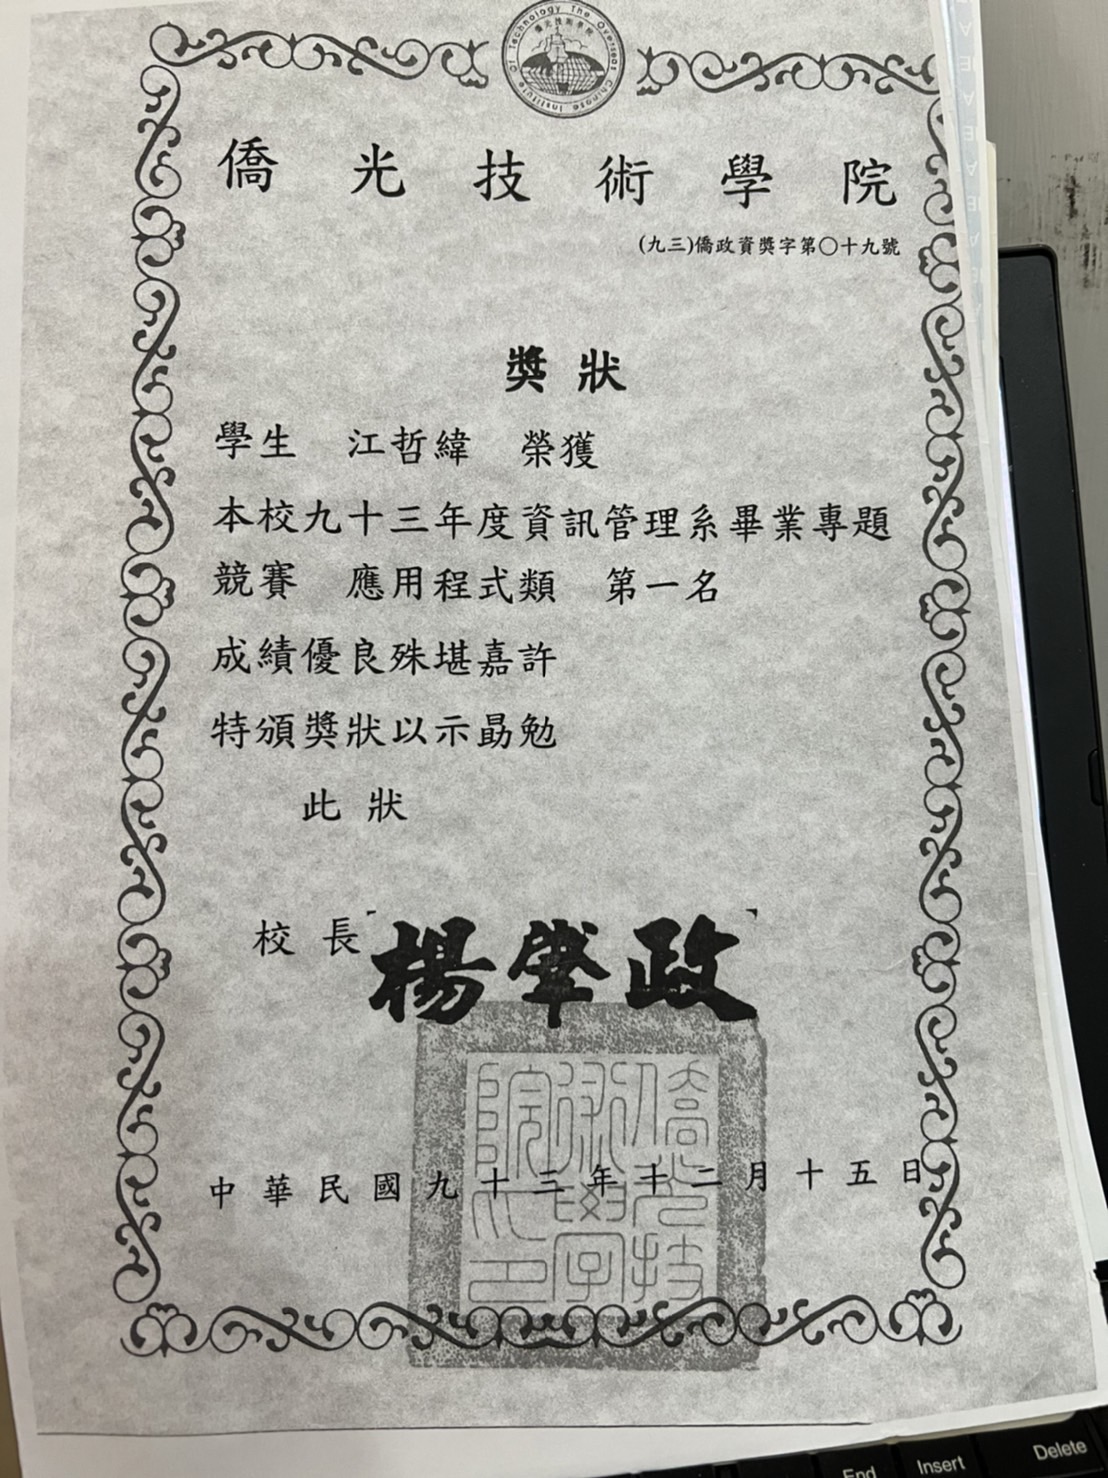 Institute Of Technology The Overseas Chinese
僑光技術學院
僑光技術學院
(九三)僑政資獎字第〇十九號
獎狀
學生 江哲緯 榮獲
本校九十三年度資訊管理系畢業專題
競賽 應用程式類 第一名
成績優良殊堪嘉許
特頒獎狀以示勗勉
此狀
校長 楊肇政
僑光技術學院之印
中華民國九十三年十二月十五日
End Insert Delete